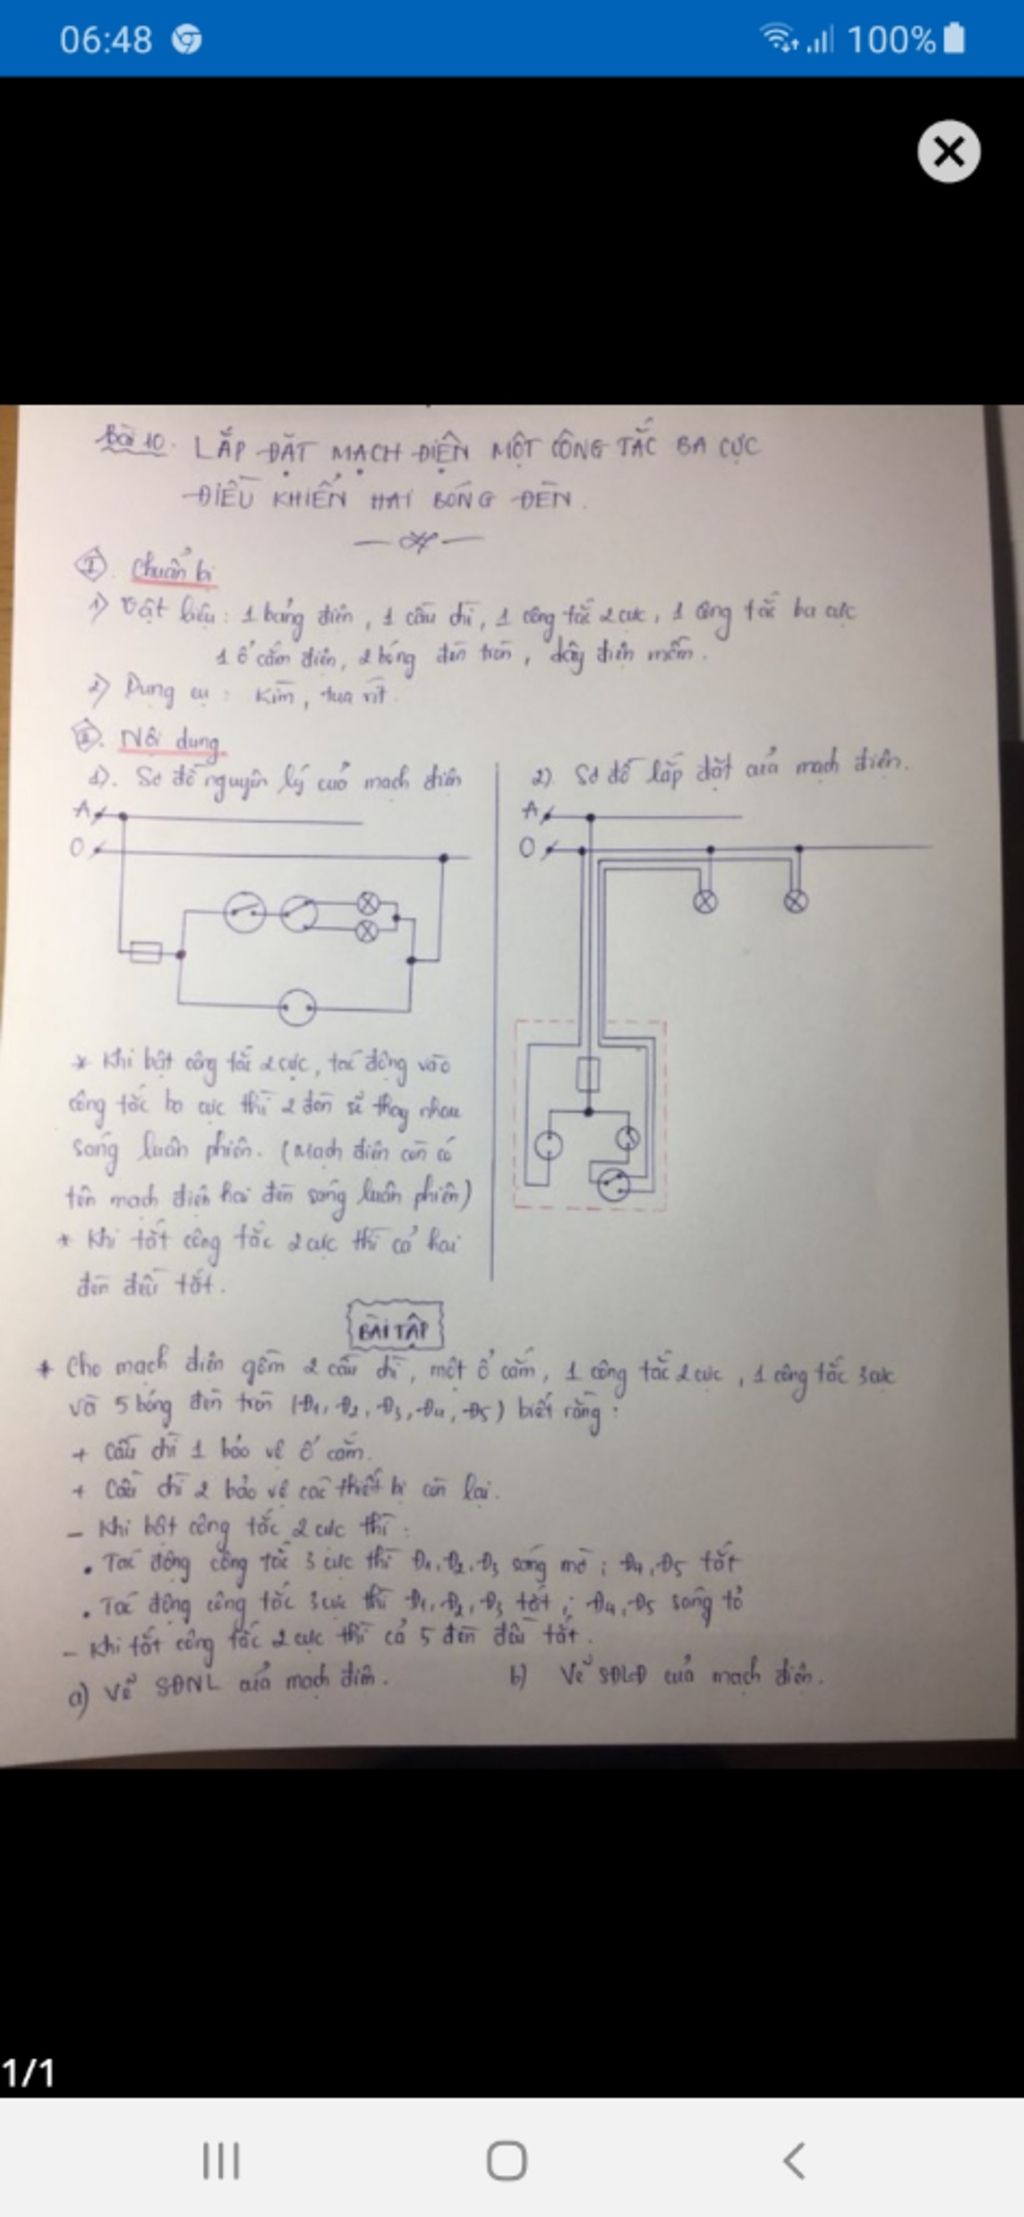 06:48
100%
Bài 10. LẮP ĐẶT MẠCH ĐIỆN MỘT CÔNG TẮC BA CỰC
ĐIỀU KHIỂN HAI BÓNG ĐÈN.
I. Chuẩn bị
1) Vật liệu: 1 bảng điện, 1 cầu chì, 1 công tắc 2 cực, 1 công tắc ba cực
1 ổ cắm điện, 2 bóng đèn tròn, dây điện mềm.
2) Dụng cụ: Kìm, tua vít.
II. Nội dung
1). Sơ đồ nguyên lý của mạch điện
A
O
* Khi bật công tắc 2 cực, tác động vào
công tắc ba cực thì 2 đèn sẽ thay nhau
sáng luân phiên. (Mạch điện còn có
tên mạch điện hai đèn sáng luân phiên)
* Khi tắt công tắc 2 cực thì cả hai
đèn đều tắt.
2) Sơ đồ lắp đặt của mạch điện.
A
O
BÀI TẬP
* Cho mạch điện gồm 2 cầu chì, một ổ cắm, 1 công tắc 2 cực, 1 công tắc 3 cực
và 5 bóng đèn tròn (Đ1, Đ2, Đ3, Đ4, Đ5) biết rằng:
+ Cầu chì 1 bảo vệ ổ cắm.
+ Cầu chì 2 bảo vệ các thiết bị còn lại.
- Khi bật công tắc 2 cực thì:
• Tác động công tắc 3 cực thì Đ1, Đ2, Đ3 sáng mờ; Đ4, Đ5 tắt
• Tác động công tắc 3 cực thì Đ1, Đ2, Đ3 tắt; Đ4, Đ5 sáng tỏ
- Khi tắt công tắc 2 cực thì cả 5 đèn đều tắt.
a) Vẽ SĐNL của mạch điện. b) Vẽ SĐLĐ của mạch điện.
1/1